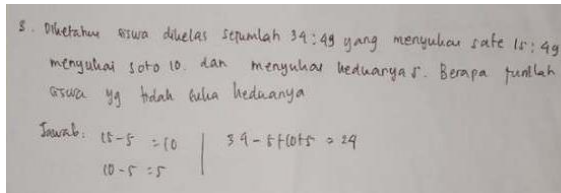 3. Diketahui siswa dikelas sejumlah 34 : yg yang menyukai sate 15 : yg
menyukai soto 10. dan menyukai keduanya 5. Berapa jumlah
siswa yg tidak suka keduanya
Jawab: 15-5 = 10 | 34 - 5+10+5 = 24
10-5 = 5